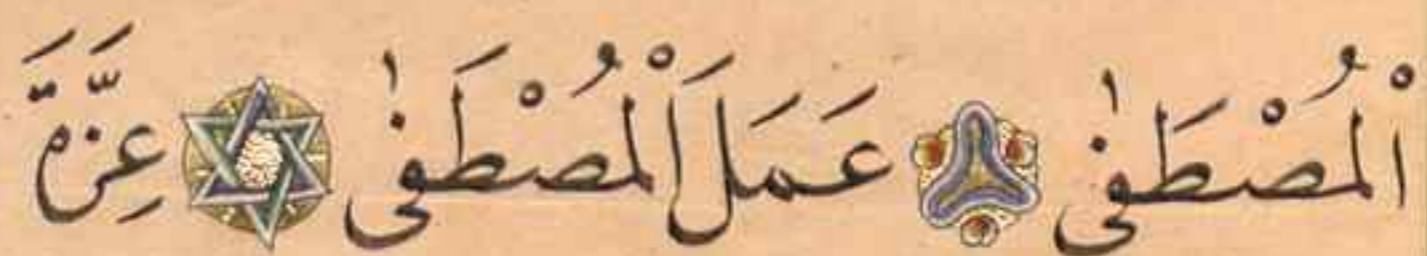 ٱلْمُصْطَفٰى عَمَلَ ٱلْمُصْطَفٰى عِزَّةَ